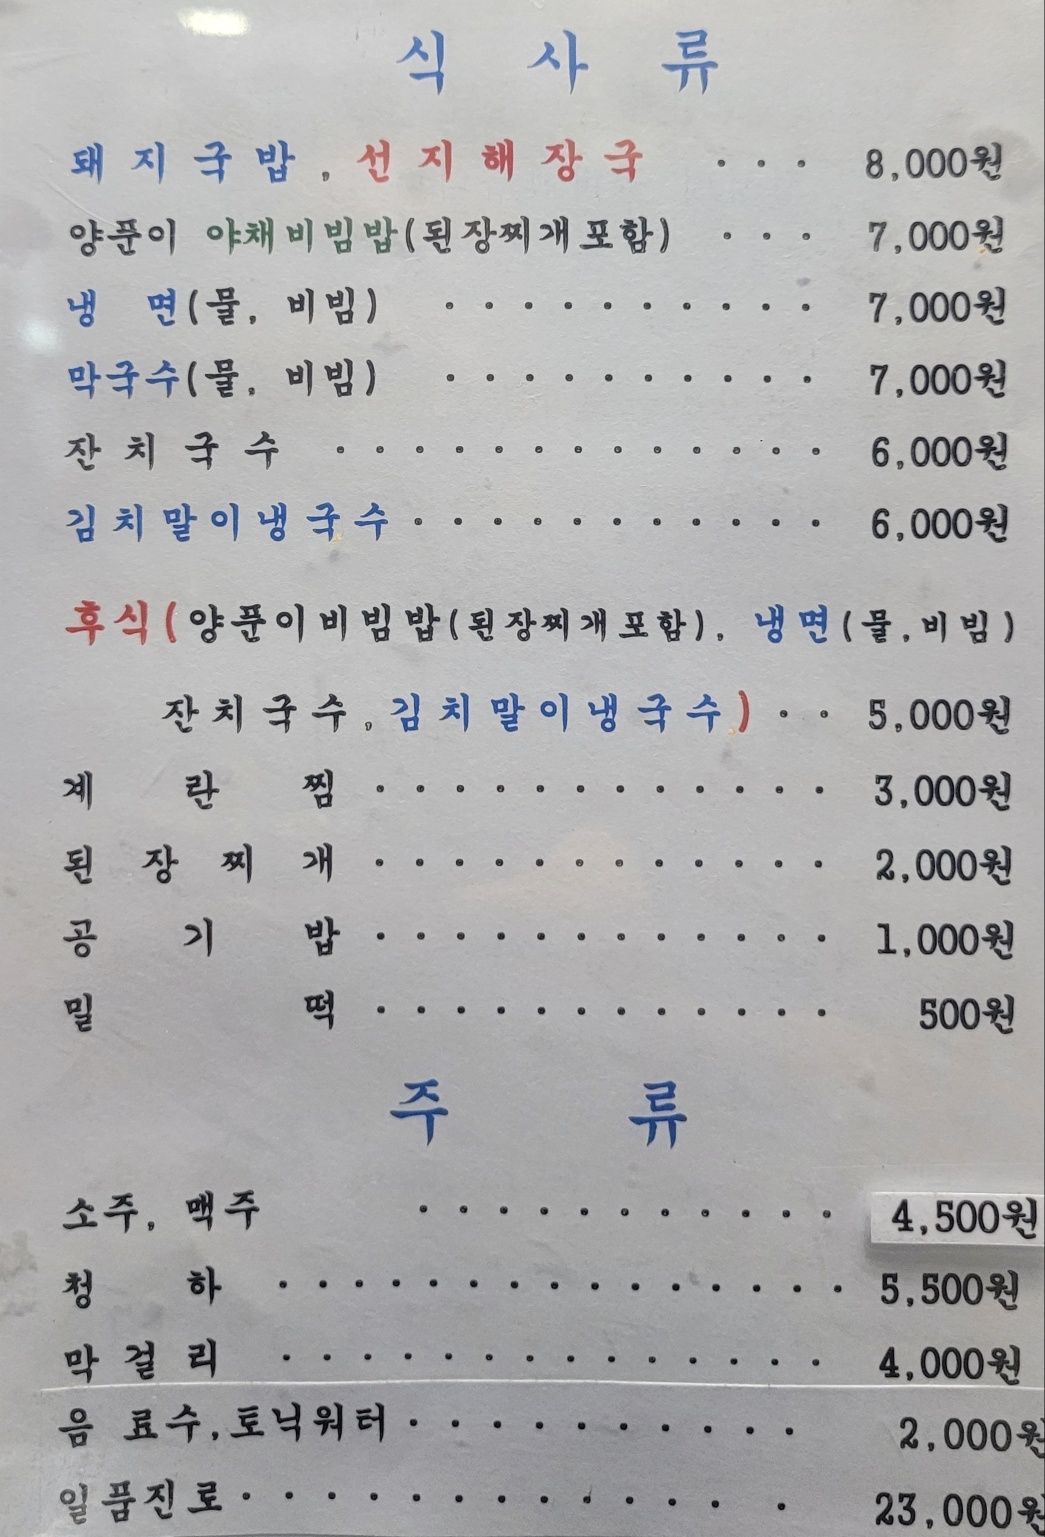 식 사 류
돼지국밥, 선지해장국 · · · 8,000원
양푼이 야채비빔밥(된장찌개포함) · · · 7,000원
냉 면(물, 비빔) · · · · · · · · · · 7,000원
막국수(물, 비빔) · · · · · · · · · · 7,000원
잔치국수 · · · · · · · · · · · · · 6,000원
김치말이냉국수 · · · · · · · · · · · 6,000원
후식(양푼이비빔밥(된장찌개포함), 냉면(물,비빔)
잔치국수,김치말이냉국수) · · 5,000원
계 란 찜 · · · · · · · · · · · · 3,000원
된 장 찌 개 · · · · · · · · · · · · 2,000원
공 기 밥 · · · · · · · · · · · · 1,000원
밀 떡 · · · · · · · · · · · · 500원
주 류
소주, 맥주 · · · · · · · · · · · 4,500원
청 하 · · · · · · · · · · · · · · · 5,500원
막걸리 · · · · · · · · · · · · · · 4,000원
음 료수,토닉워터 · · · · · · · · · · 2,000원
일품진로 · · · · · · · · · · · · · · 23,000원